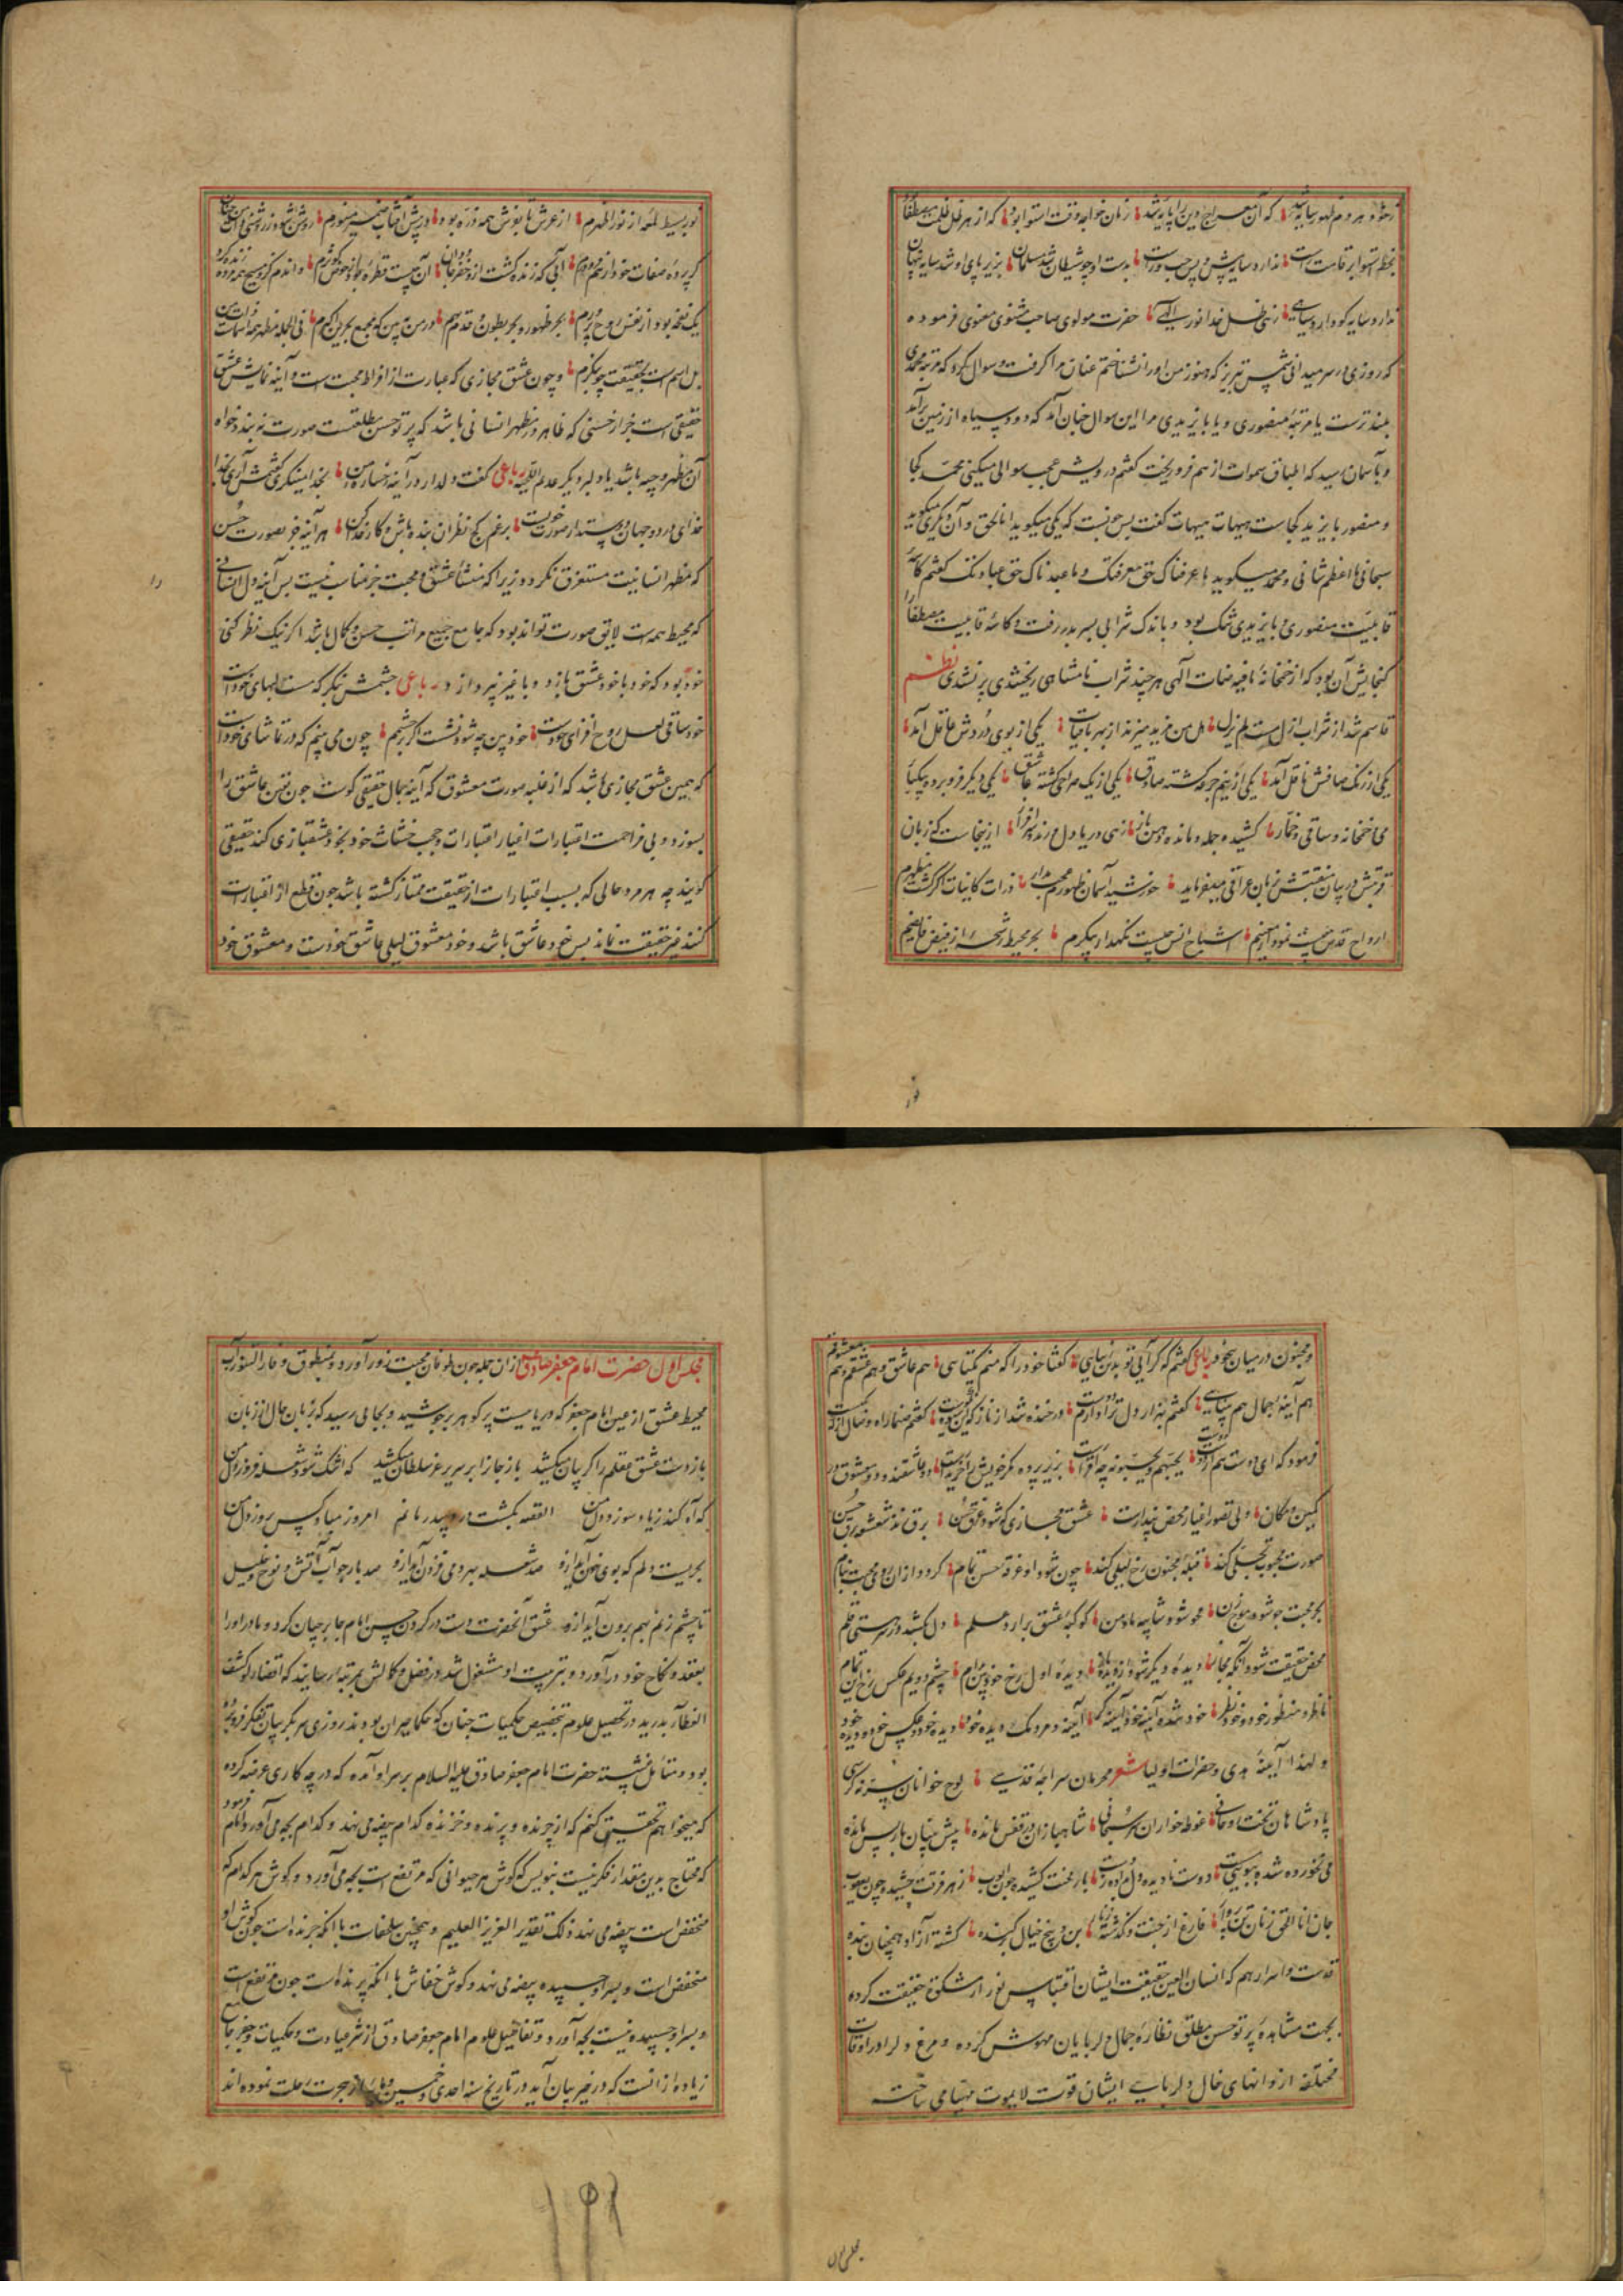 که آن معراج دین را پایه شد زمان خواجه وقت استوا بود که از هر ظل ظلمت مصطفا
بخط استوا بر قامت راست ندارد سایه پیش و پس چپ و راست بدست او چو شیطان شد مسلمان بزیر پای او شد سایه پنهان
ندارد سایه کو دارد سیاهی زهی ظل خدا نور الهی حضرت مولوی صاحب مثنوی معنوی فرموده
که روزی در سر میدانی شمس تبریز که هنوز من او را نشناختم عنان مرا گرفت و سوال کرد که مرتبه محمدی
بلندترست یا مرتبه منصوری و یا بایزیدی مرا این سوال چنان آمد که دود سیاه از زمین برآمد
و بآسمان رسید که اطباق سموات از هم فرو ریخت گفتم درویش عجب سوالی میکنی محمد کجا
و منصور بایزید کجاست هیهات هیهات گفت پس چونست که یکی میگوید انا الحق و آن دیگری میگوید
سبحانی ما اعظم شانی و محمد میگوید ما عرفناک حق معرفتک و ما عبدناک حق عبادتک گفتم کاسه
قابلیت منصوری و بایزیدی تنک بود و باندک شرابی بسر بدر رفت و کاسه قابلیت مصطفا را
گنجایش آن بود که از خمخانه فیضات الهی هر چند شراب نامتناهی ریختندی پر نشدی نظم
قاسم شد از شراب ازل مست لم یزل هل من مزید میزند از بهر باقیات یکی از بوی دردش عاقل آمد
یکی از رنگ صافش ناقل آمد یکی از نیم جرعه گشته صادق یکی از یک صراحی گشته عاشق یکی دیگر فرو برده بیکبار
می خمخانه و ساقی و خمار کشیده جمله و مانده دهن باز زهی دریا دل رند سرافراز ازینجاست که زبان
در بیان منقبتش زبان عراقی میفرماید خورشید آسمان ظهورم عجب مدار ذرات کاینات اگر گشت مظهرم
ارواح قدس چیست نمودار معنیم اشباح انس چیست نگهدار پیکرم بحر محیط رشحه از فیض فایضم
نور بسیط لمعه از نور اظهرم از عرش تا بفرش همه ذره بود در پیش آفتاب ضمیر منورم روشن شود ز روشنی ذات من جهان
گر پرده صفات خود از هم فرو درم آبی که زنده گشت ازو خضر جاودان آن چیست قطره ز حوض کوثرم واندم کزو مسیح همی مرده زنده کرد
یک نفخه بود از نفس روح پرورم بحر ظهور و بحر بطون قدم بهم در من ببین که مجمع بحرین اکبرم فی الجمله مظهر همه اسماست ذات من
بل اسم اعظمم بحقیقت چو بنگرم و چون عشق مجازی که عبارت از افراط محبت است و آینه نمایش عشق
حقیقی است جز از حسنی که ظاهر در مظهر انسانی باشد که پرتو حسن مطلقست صورت نبندد خواه
آن مظهر وجیه باشد یا دلبر دیگر رباعی گفت دلدار در آینه رخساره من بخدا مینگری گفتمش آری بخدا
که مظهر انسانیت مستغرق نگردد زیرا که منشأ عشق و محبت جز مناسبت نیست پس آینه دل انسانی
که محیط همه است لایق صورت تواند بود که جامع جمیع مراتب حسن و کمال باشد اگر نیک نظر کنی
خود بود که خود با خود عشق بازد و با غیر نپردازد رباعی چشمش بنگر که مست لبهای خودست
خود ساقی لعل روح افزای خودست خودبین چه شود نشست اگر بر چشمم چون می بینم که در تماشای خودست
که همین عشق مجازی باشد که از غلبه صورت معشوق که آینه جمال حقیقی گوست چون نفس عاشق را
بسوزد و بی مزاحمت اعتبارات اغیار اعتبارات خود بخود عشقبازی کند حقیقی
گویند چه هر مرد عالی که بسبب اعتبارات از حقیقت ممتاز گشته باشد چون قطع از اعتبارات
کنند غیر حقیقت نماند پس خود عاشق باشد و خود معشوق لیلی عاشق خودست و معشوق خود
و مجنون در میان بیخود رباعی گفتم که کرایی تو بدین زیبایی گفتا خود را که منم یکتایی هم عاشق و هم عشقم و هم معشوقم
هم آینه جمال هم بینایی
فرمود که ای دوست یحبهم و یحبونه
ولی تصور اغیار محض پندارست عشق مجازی که شود غرق حسن
صورت محبوب تجلی کند قبله مجنون رخ لیلی کند چون شود او غرقه حسن تمام گردد از آن روی محبت بنام
بحر محبت چو شود موج زن محو شود شایبه ما و من کوکبه عشق برآرد علم دل بکشد در سر هستی قلم
محض حقیقت شود آنگه مجاز دیده دیگر شود از دیده باز دیده اول رخ خود بین مدام چشم دویم عکس رخ این تمام
ناظر و منظور خود و خود نظر خود شده آینه خود آینه گر آینه و مردمک دیده خود دیده خود و عکس خود و دیده خود
و لهذا ائمه هدی و حضرات اولیا شعر محرمان سراچه قدسی لوح خوانان سر نه کرسی
پادشاهان تخت اوحایی غوطه خواران بحر سبحانی شاهبازان در قفس مانده پیش بینان بازپس مانده
می نخورده شده ببویی مست دوست نادیده دل داده ز دست بار محنت کشیده چون ایوب زهر فرقت چشیده چون یعقوب
جان انا الحق زنان تن بر دار فارغ از جنت و گذشته ز نار بن و بیخ خیال برکنده گشته آزاد و همچنان بنده
قدست اسرارهم که انسان العین حقیقت ایشان اقتباس نور از مشکوة حقیقت کرده
بجهت مشاهده پرتو حسن مطلق نظاره جمال دلربایان مهوش کرده و مرغ دل را در اوقات
مختلفه از دانهای خال دلربای ایشان قوت لایموت مهیا می ساخت
مجلس اول حضرت امام جعفر صادق از آن جمله چون طوفان محبت زور آورد و بمنطوق و فار التنور آب
محیط عشق از عین امام جعفر که دریاییست پر گوهر بر جوشید و بجایی رسید که زبان حال از زبان
باز دست عشق عقلم را گریبان میکشد باز جانرا بر سریر عز سلطان میکشد که اشک شود شعله فروز دل من
که آه کند زیاد سوز دل من القصه بکشت درد بیدرمانم امروز مباد کس بروز دل من
بحریست دلم که بوی خون آید ازو صد شعله بهر دمی فزون آید ازو صد بار جو آب آتش و نوح و خلیل
تا چشم زنم بهم برون آید ازو عشق آنحضرت دست در گردن حسن امام جابر حیان کرد و مادر او را
بعقد و نکاح خود درآورد و بتربیت او مشغول شد و در فضل و کمالش بمرتبه رسانید که اقتضای لو کشف
الغطا بدرید در تحصیل علوم بتخصیص حکمیات چنان که حکما حیران بودند روزی سر بگریبان تفکر فرو برده
بود و متأمل نشسته حضرت امام جعفر صادق علیه السلام بر سر او آمده که در چه کاری عرضه کرده
که میخواهم تحقیق کنم که از چرنده و پرنده و خزنده کدام بیضه می نهد و کدام بچه می آورد امام فرمود
که محتاج بدین مقدار فکر نیست بنویس که گوش هر حیوانی که مرتفع است بچه می آورد و گوش هر کدام که
منخفض است بیضه می نهد ذلک تقدیر العزیز العلیم و همچنین سلحفات با آنکه چرنده است چون گوش او
منخفض است و بسر او چسپیده بیضه می نهد و گوش خفاش با آنکه پرنده است چون مرتفع است
و بسر او چسپیده نیست بچه آورد و تفاصیل علوم امام جعفر صادق از شرعیات و حکمیات و جفر جامع
زیاده از آنست که در حیز بیان آید در تاریخ سنه احدی و خمسین و مایه از هجرت رحلت نموده اند